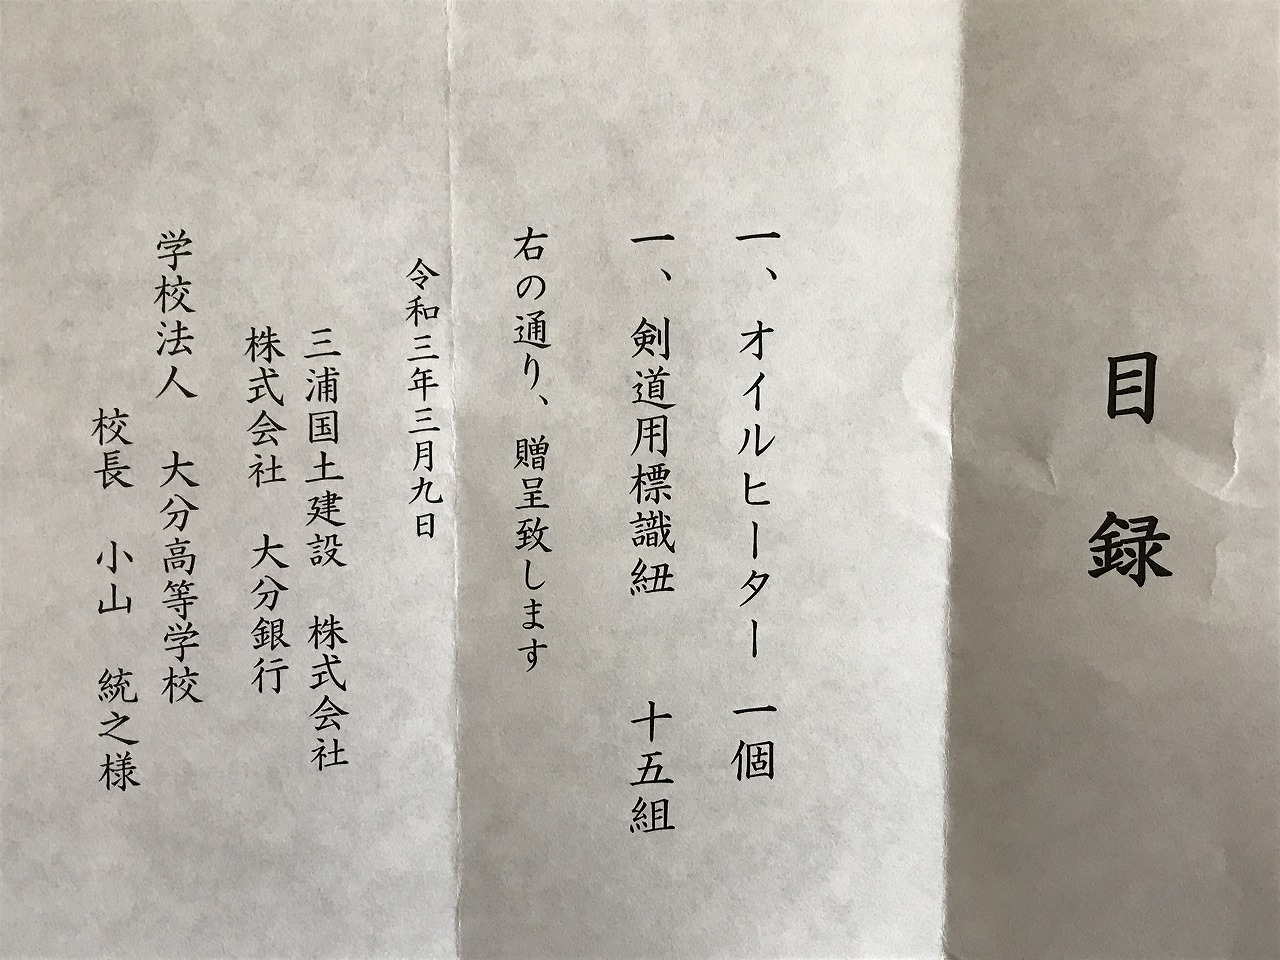 目録
一、オイルヒーター 一個
一、剣道用標識紐 十五組
右の通り、贈呈致します
令和三年三月九日
三浦国土建設 株式会社
株式会社 大分銀行
学校法人 大分高等学校
校長 小山 統之様